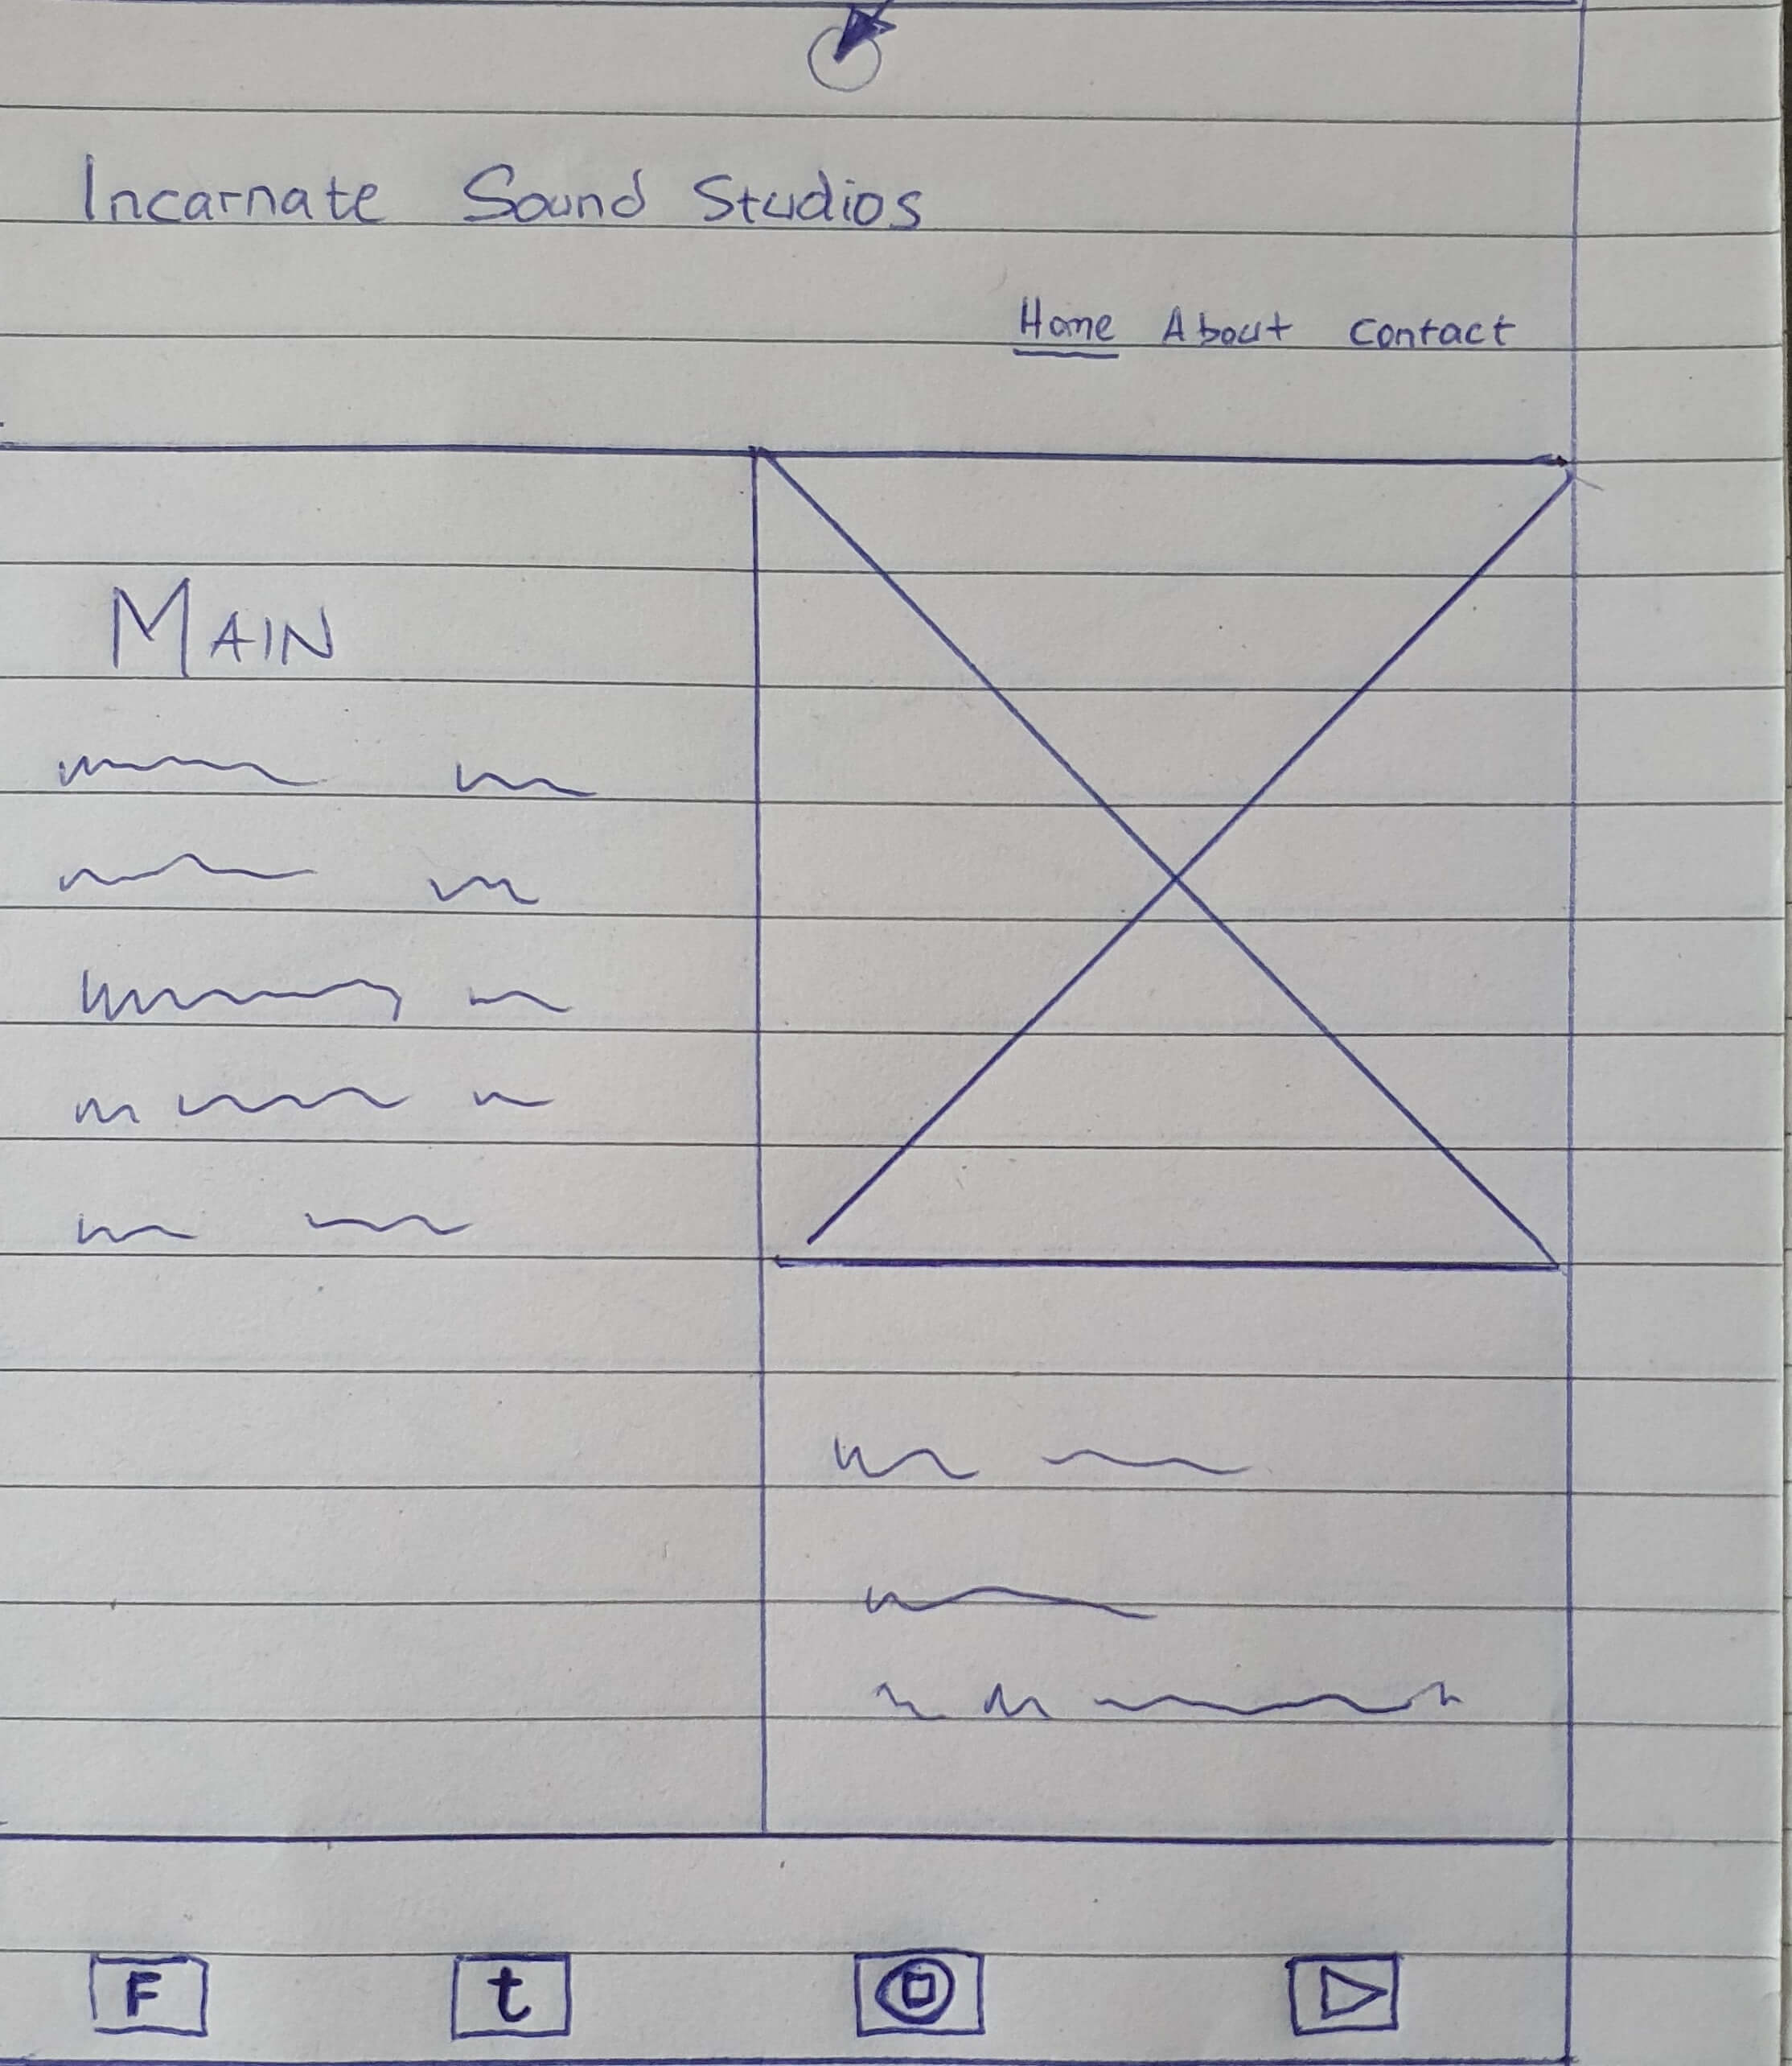 Incarnate Sound Studios
Home About Contact
MAIN
F t